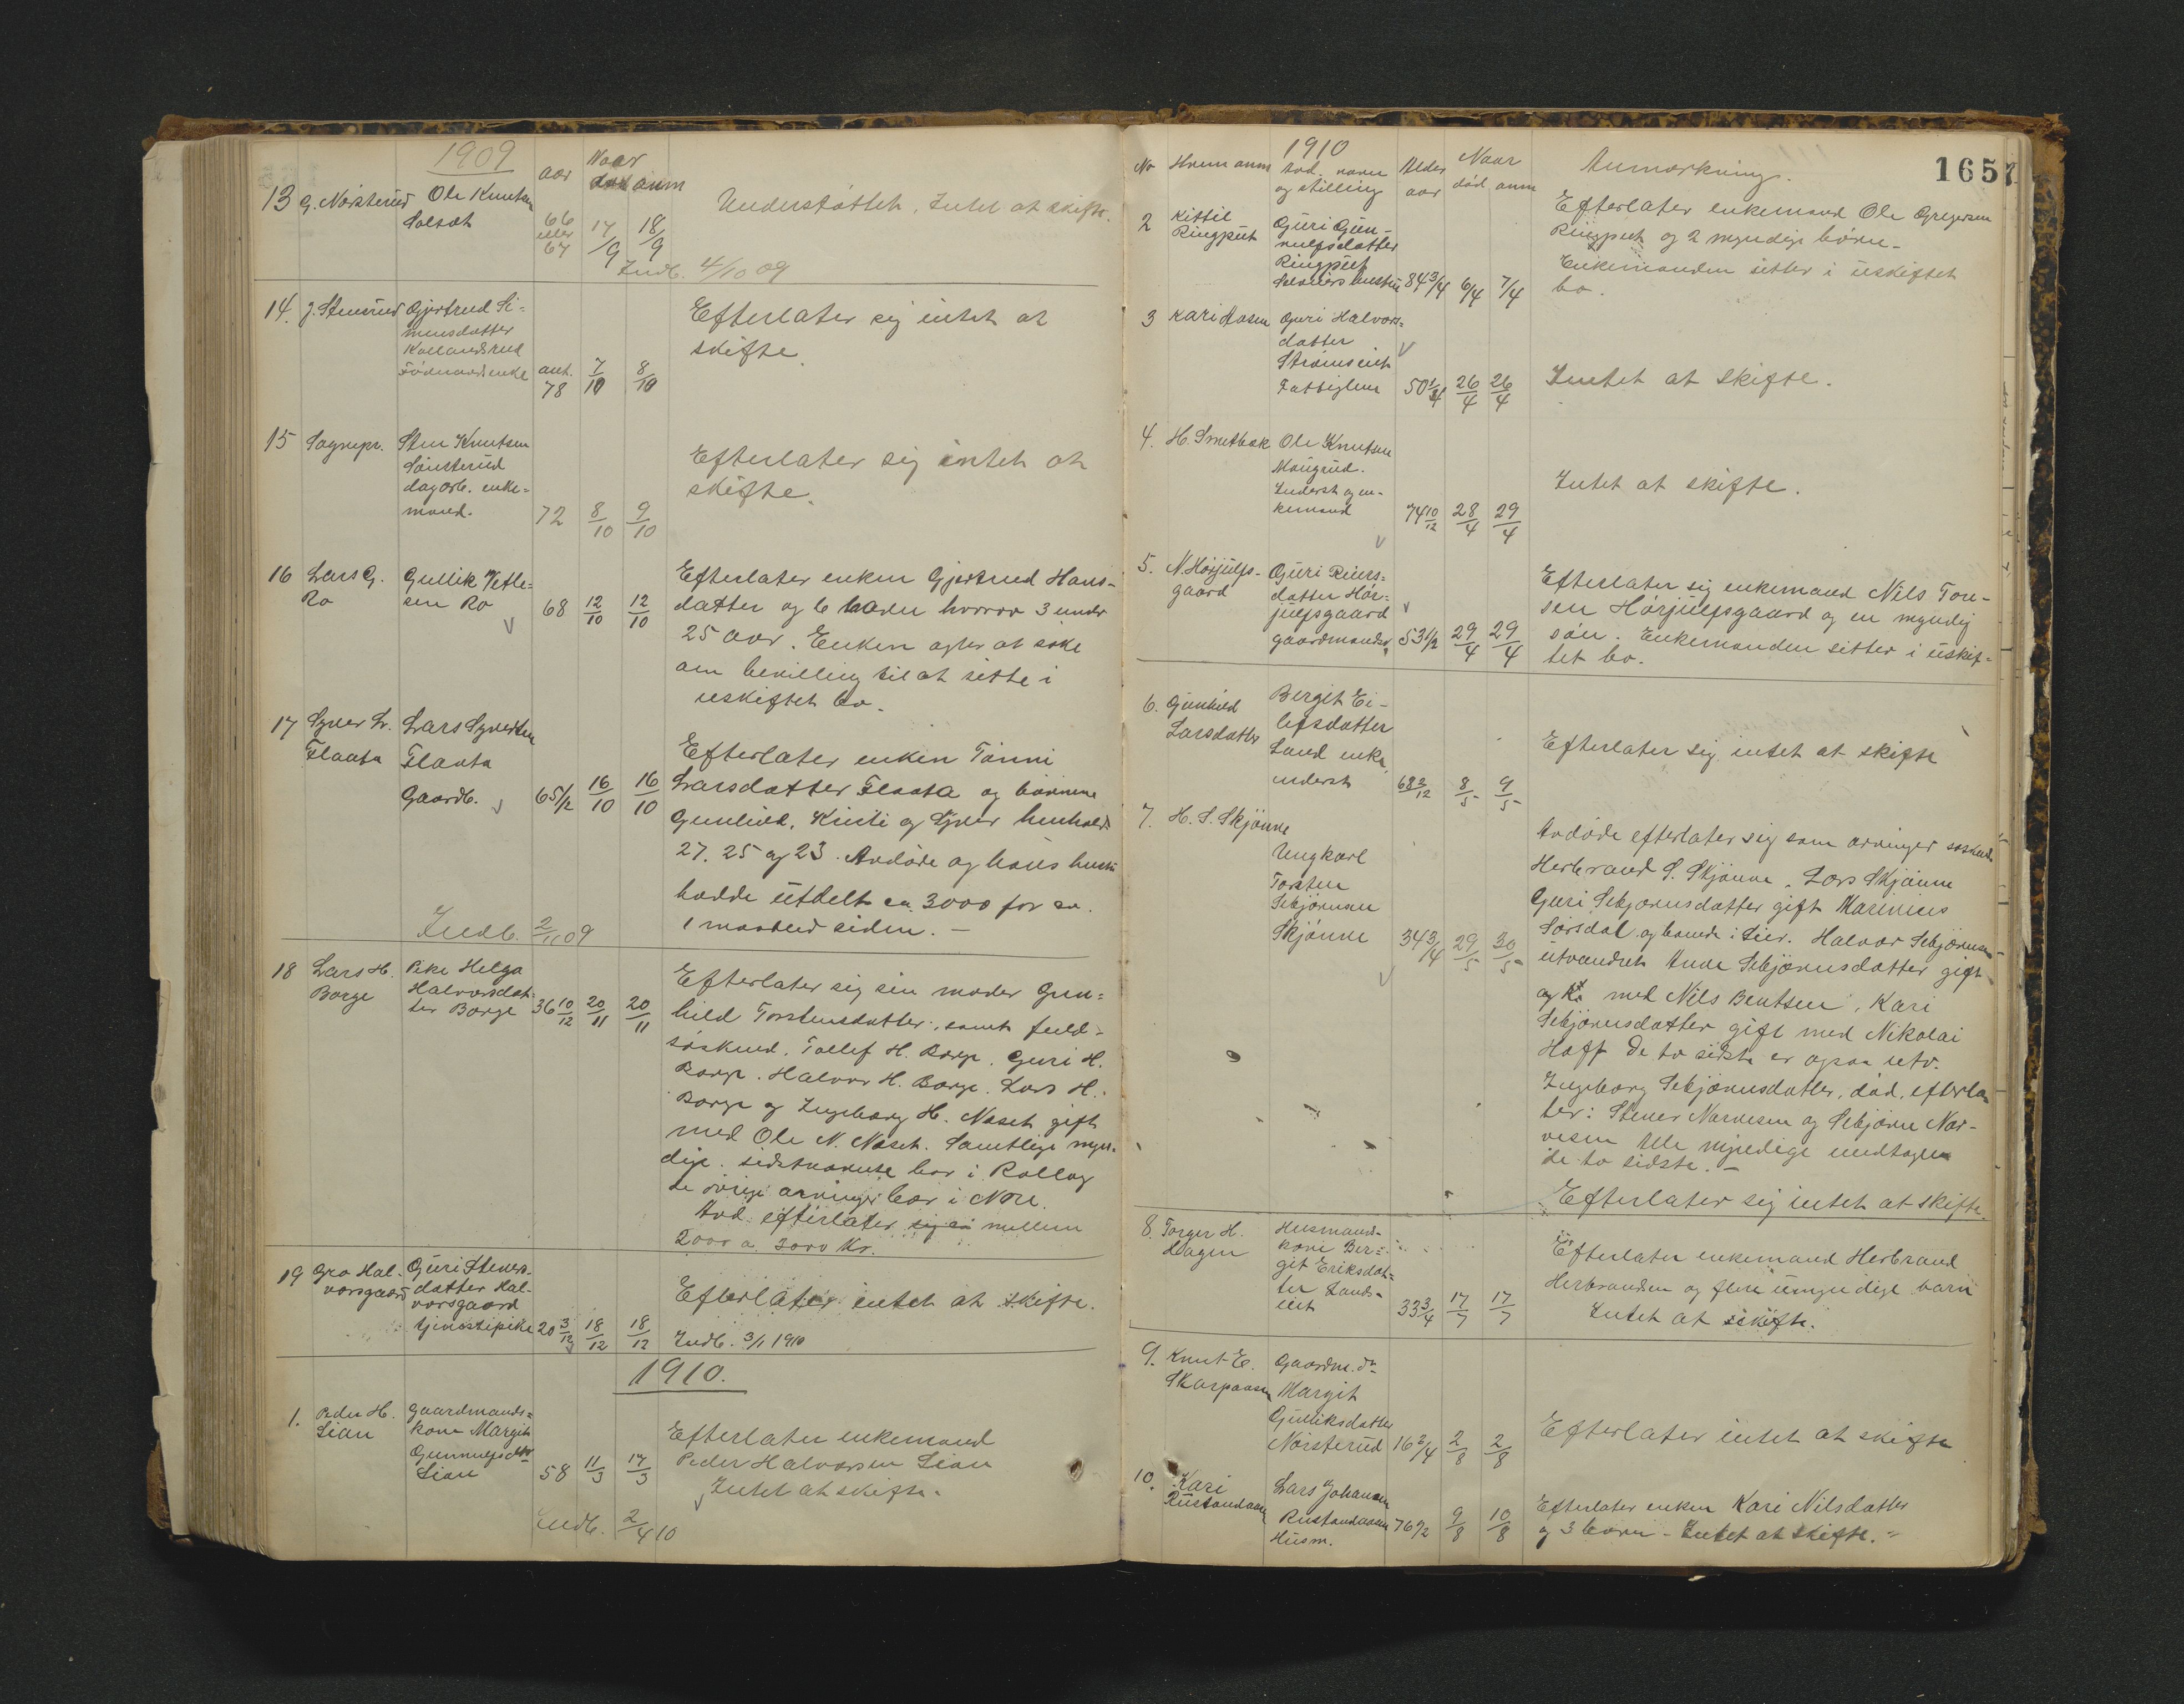 1909
aar
Naar
død anm
13 G. Nørsterud Ole Knutsen
Solsæt
66
eller
67
17/9 18/9
Understøttet. Intet at skifte.
Indb. 4/10 09
14. J. Stenerud Gjertrud Si-
mensdatter
Kollandsrud
Føderaadsenke ant. 78 7/10 8/10
Efterlater sig intet at
skifte.
15 Sognepr. Sten Knutsen
Sønsterud
dagarb. enke-
mand. 72 8/10 9/10
Efterlater sig intet at
skifte.
16 Lars G. Ro
Gullik Vetle-
sen Ro 68 12/10 12/10
Efterlater enken Gjertrud Hans-
datter og 6 barn hvorav 3 under
25 aar. Enken agter at søke
om bevilling til at sitte i
uskiftet bo.
17 Syver L. Flaata
Lars Syversen
Flaata
Gaardb. 65 1/2 16/10 16/10
Efterlater enken Tønni
Larsdatter Flaata og børnene
Gunhild, Kristi og Syver henholds
27, 25 og 23. Avdøde og hans hustru
hadde utdelt ca 3000 for ca.
1 maaned siden. —
Indb. 2/11 09
18 Lars H. Borge
Pike Helga
Halvorsdat-
ter Borge 36 10/12 20/11 20/11
Efterlater sig sin moder Gun-
hild Torstensdatter, samt fuld-
søskend. Tollef H. Borge. Guri H.
Borge. Halvor H. Borge. Lars H.
Borge og Ingeborg H. Næset gift
med Ole N. Næset. Samtlige myn-
dige. sidstnævnte bor i Rollag
de øvrige arvinger bor i Nore.
Avd. efterlater sig ca mellem
2000 a 3000 Kr.
19 Gro Hal-
vorsgaard
Guri Steners-
datter Hal-
vorsgaard
tjenestepike 20 3/12 18/12 18/12
Efterlater intet at skifte.
Indb. 3/1 1910
1910.
1. Peder H. Lian
Gaardmands-
kone Margit
Gunnulfsdtr
Lian 58 11/3 17/3
Efterlater enkemand
Peder Halvorsen Lian
Intet at skifte.
Indb. 2/4 10
1657
1910
No Hvem anm
Avd. navn
og stilling
Alder
aar
Naar
død anm
Anmerkning.
2 Kittil
Ringput
Guri Gun-
nulfsdatter
Ringput
Selveiers hustru 84 3/4 6/4 7/4
Efterlater enkemand Ole Gregersen
Ringput og 2 myndige børn-
Enkemanden sitter i uskiftet
bo.
3 Kari Aasen Guri Halvors-
datter
Strømseiet
Fattiglem 50 1/4 26/4 26/4
Intet at skifte.
4. H. Smetbak Ole Knutsen
Maugrud.
Inderst og en-
kemand 74 10/12 28/4 29/4
Intet at skifte.
5. N. Hørjulfs-
gaard
Guri Reiers-
datter Hør-
julfsgaard
gaardmandsk. 53 1/2 29/4 29/4
Efterlater sig enkemand Nils Tore-
sen Hørjulfsgaard og en myndig
søn. Enkemanden sitter i uskif-
tet bo.
6. Gunhild
Larsdatter
Bergit Ei-
lefsdatter
Lund enke,
inderst 68 2/12 8/5 9/5
Efterlater sig intet at skifte
7. H. S. Skjønne
Ungkarl
Torsten
Sebjørnsen
Skjønne 34 3/4 29/5 30/5
Avdøde efterlater sig som arvinger søskende
Herbrand S. Skjønne. Lars Skjønne
Guri Sebjørnsdatter gift Marinius
Sørsdal og boende i Lier. Halvor Sebjørnsen
utvandret Anne Sebjørnsdatter gift
og K. med Nils Bentsen, Kari
Sebjørnsdatter gift med Nikolai
Hoff de to sidste er ogsaa utv.
Ingeborg Sebjørnsdatter, død, efterla-
ter: Stener Narvesen og Sebjørn Nar-
vesen Alle myndige undtagen
de to sidste. —
Efterlater sig intet at skifte.
8. Torger H.
Dagen
Husmands-
kone Ber-
git Eriksdat-
ter Lands-
eiet 33 3/4 17/7 17/7
Efterlater enkemand Herbrand
Herbrandsen og flere umyndige barn
Intet at skifte.
9. Knut E.
Skarpaasen
Gaardm. dr
Margit
Gulliksdatter
Nørsterud 16 3/4 2/8 2/8
Efterlater intet at skifte
10. Kari
Rustandaasen
Lars Johansen
Rustandaasen 76 1/2 9/8 10/8
Husm.
Efterlater enken Kari Nilsdatter
og 3 børn - Intet at skifte. -